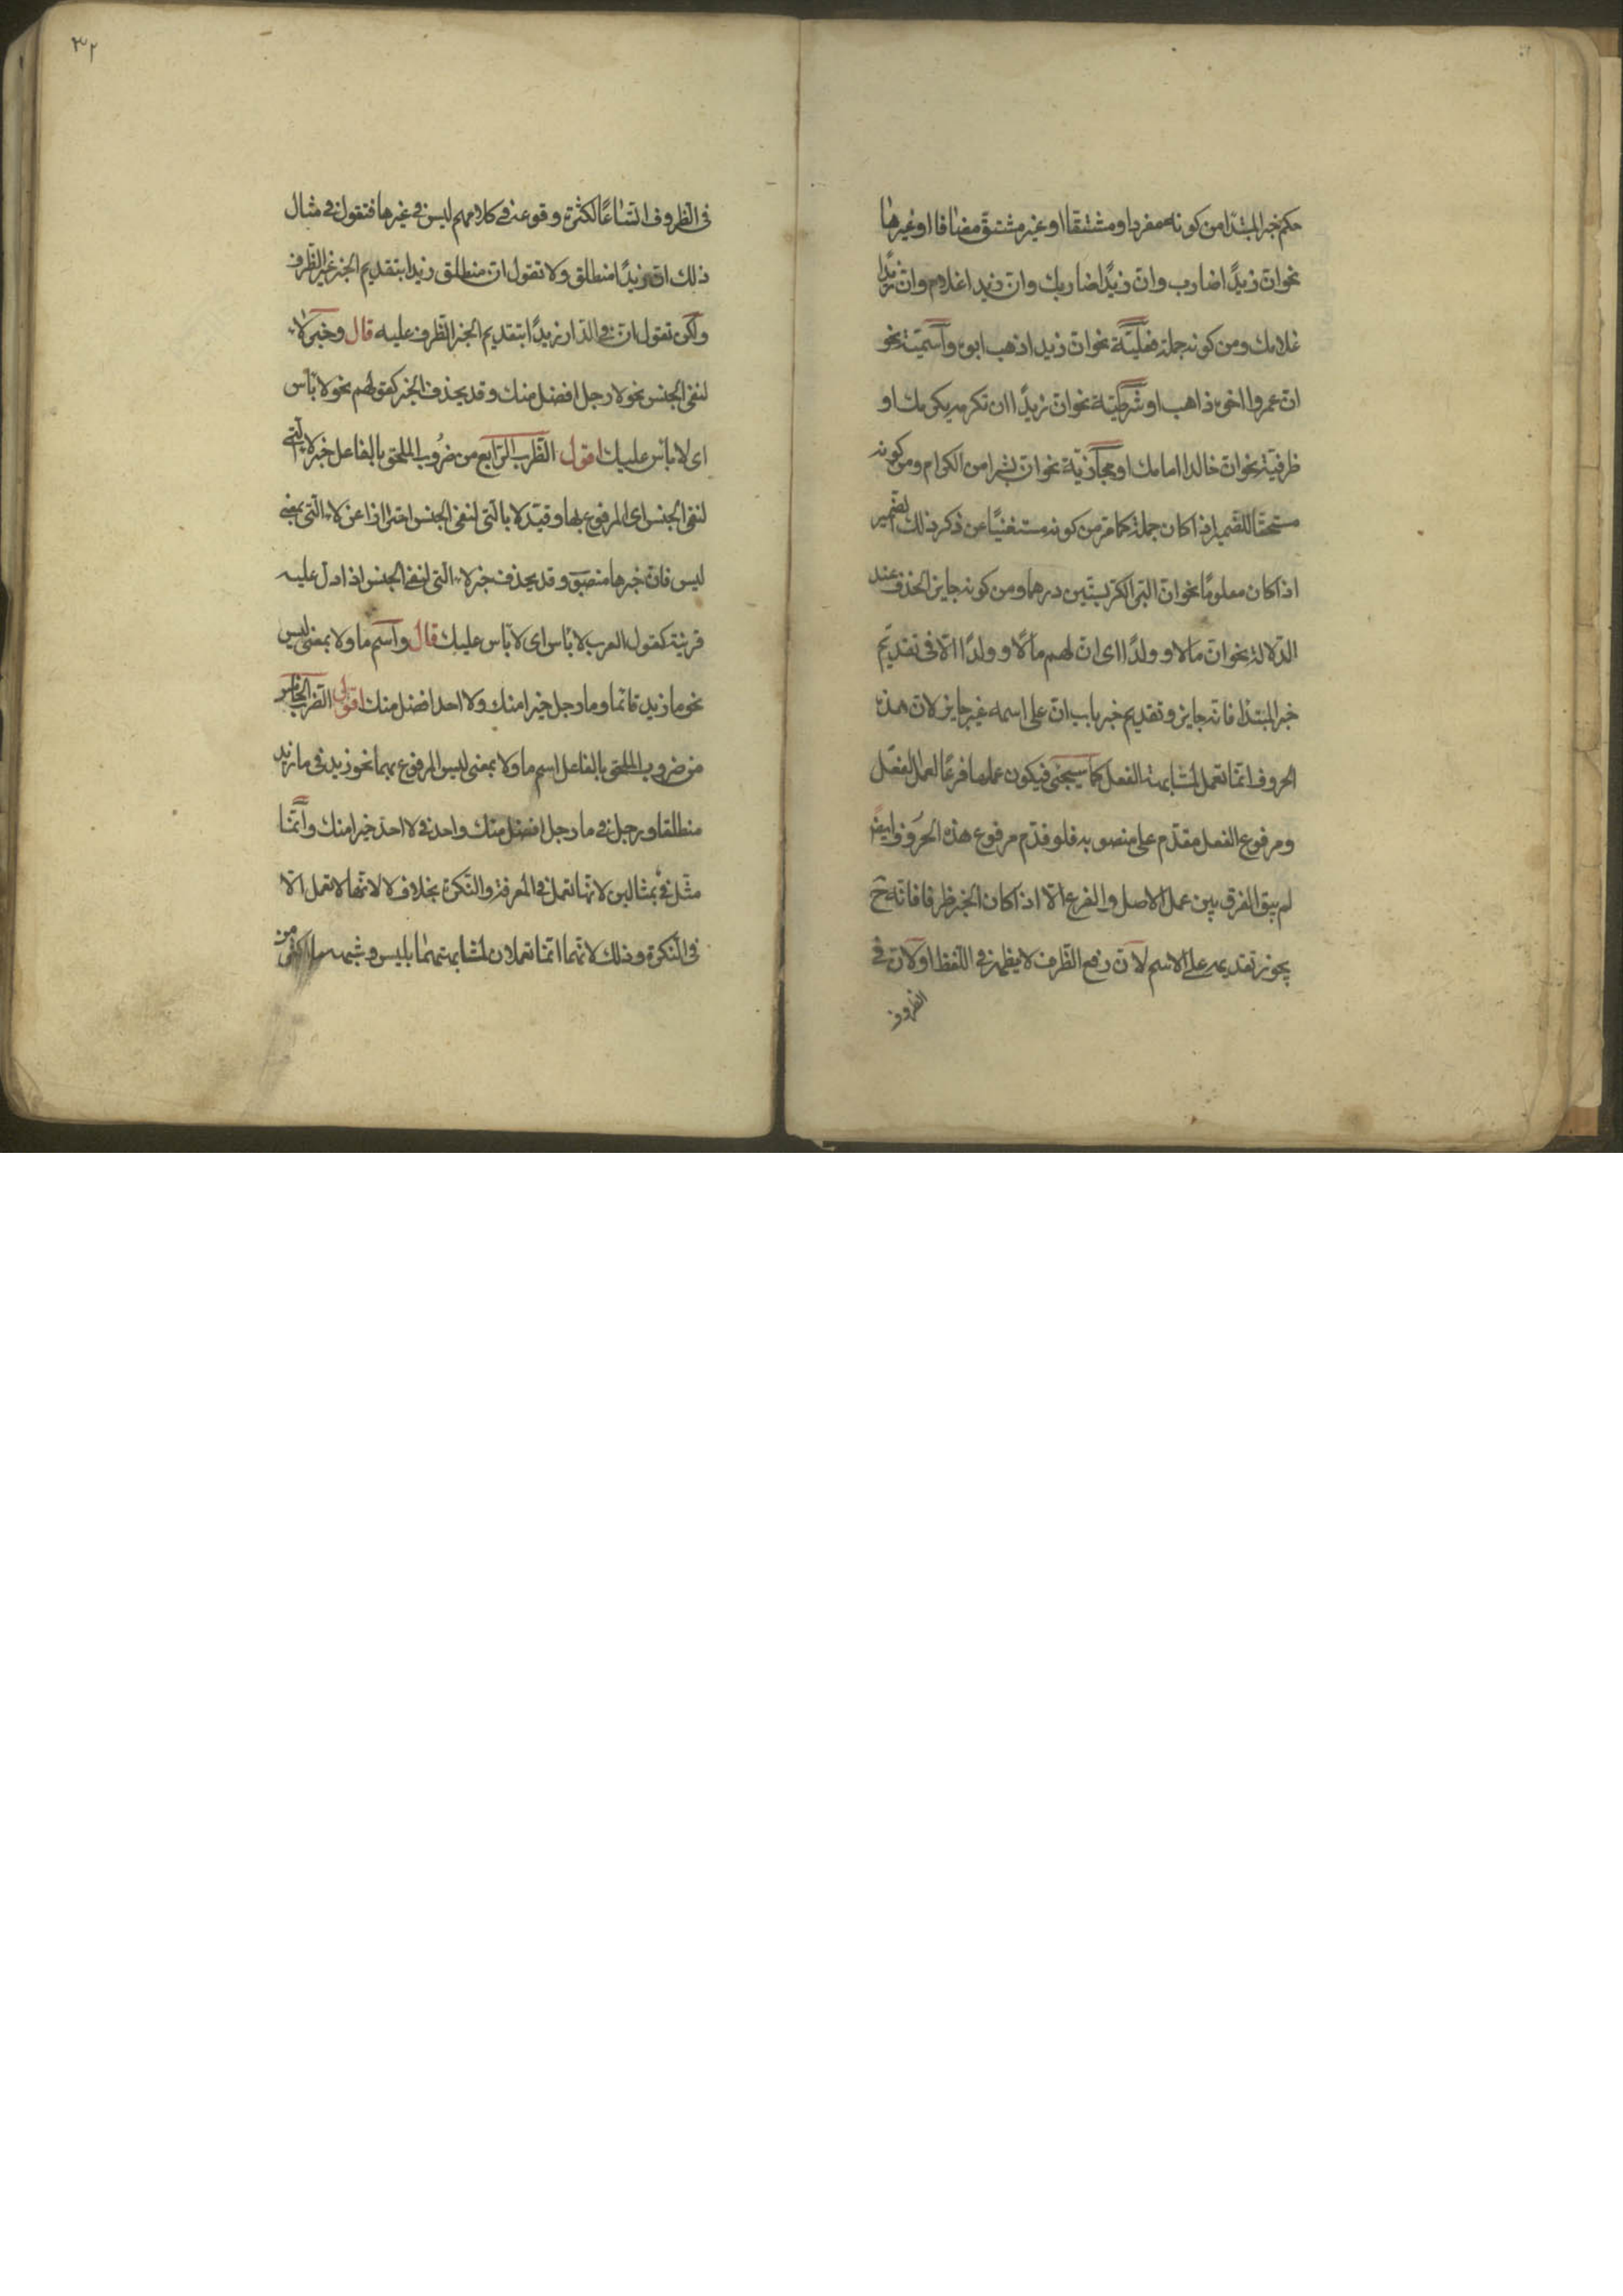 حكم خبر المبتدا من كونه مفردا ومشتقا او غير مشتق مضافا او غيرها
نحو ان زيدًا ضارب وان زيدًا ضاربك وان زيدا غلام وان زيدًا
غلامك ومن كونه جملة فعليّة نحو ان زيدا ذهب ابوه واسميّة نحو
ان عمروا اخوه ذاهب او شرطيّة نحو ان زيدًا ان تكرمه يكرمك او
ظرفيّة نحو ان خالدا امامك او مجازيّة نحو ان بشرا من الكرام ومن كونه
مستحقا للضمير اذا كان جملة كما مرّ من كونه مستغنيًا عن ذكر ذلك الضمير
اذا كان معلومًا نحو ان البرّ الكرّ بستّين درهما ومن كونه جايز الحذف عند
الدّلالة نحو انّ مالا و ولدًا اى ان لهم مالًا و ولدًا الّا فى تقديم
خبر المبتدا فانه جايز وتقديم خبر باب ان على اسمه غير جايز لان هذه
الحروف انّما تعمل لمشابهة الفعل كما سيجئ فيكون عملها فرعًا لعمل الفعل
ومرفوع الفعل مقدّم على منصوبه فلو قدّم مرفوع هذه الحروف ايضًا
لم يبق الفرق بين عمل الاصل والفرع الّا اذا كان الخبر ظرفا فانّه ح
يجوز تقديمه على الاسم لانّ رفع الظّرف لا يظهر فى اللّفظ او لانّ فى
الظروف
٣٢
فى الظّروف اتّساعًا لكثرة وقوعه فى كلامهم ليس فى غيرها فتقول فى مثال
ذلك ان زيدًا منطلق ولا تقول ان منطلق زيدا بتقديم الخبر غير الظّرف
ولكن تقول ان فى الدّار زيدًا بتقديم الخبر الظّرف عليه قال وخبر لا
لنفى الجنس نحو لا رجل افضل منك وقد يحذف الخبر كقولهم نحو لا بأس
اى لا بأس عليك اقول الضّرب الرّابع من ضروب الملحق بالفاعل خبر لا الّتى
لنفى الجنس اى المرفوع بها وقيّد لا بالّتى لنفى الجنس احترازا عن لا الّتى بمعنى
ليس فانّ خبرها منصوب وقد يحذف خبر لا الّتى لنفى الجنس اذا دلّ عليه
قرينة كقول العرب لا بأس اى لا بأس عليك قال واسم ما ولا بمعنى ليس
نحو ما زيد قائما وما رجل خيرا منك ولا احد افضل منك اقول الضّرب الخامس
من ضروب الملحق بالفاعل اسم ما ولا بمعنى ليس المرفوع بهما نحو زيد فى ما زيد
منطلقا ورجل فى ما رجل افضل منك واحد فى لا احد خيرا منك وانّما
مثّل فى بمثالين لانّها تعمل فى المعرفة والنّكرة بخلاف لا لانّها لا تعمل الّا
فى النّكرة وذلك لانّهما انّما تعملان لمشابهتهما بليس وشبه ما اكثر من